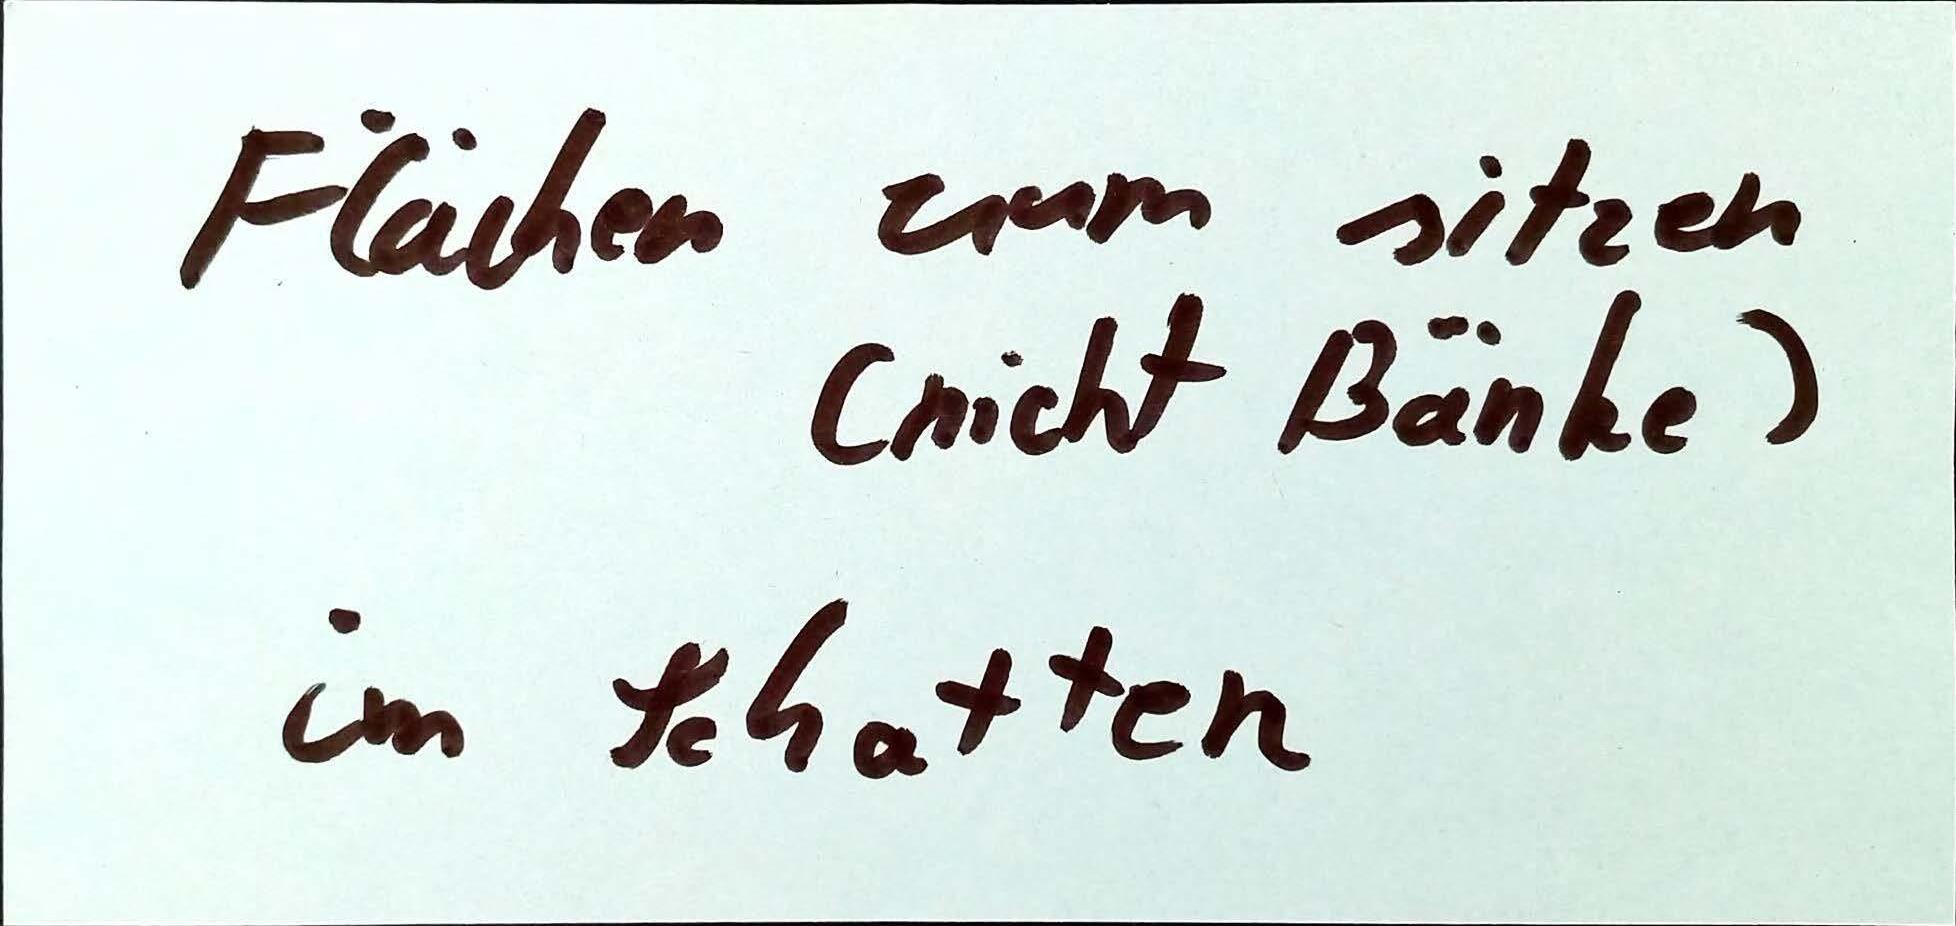 Flächen zum sitzen
(nicht Bänke)
im Schatten